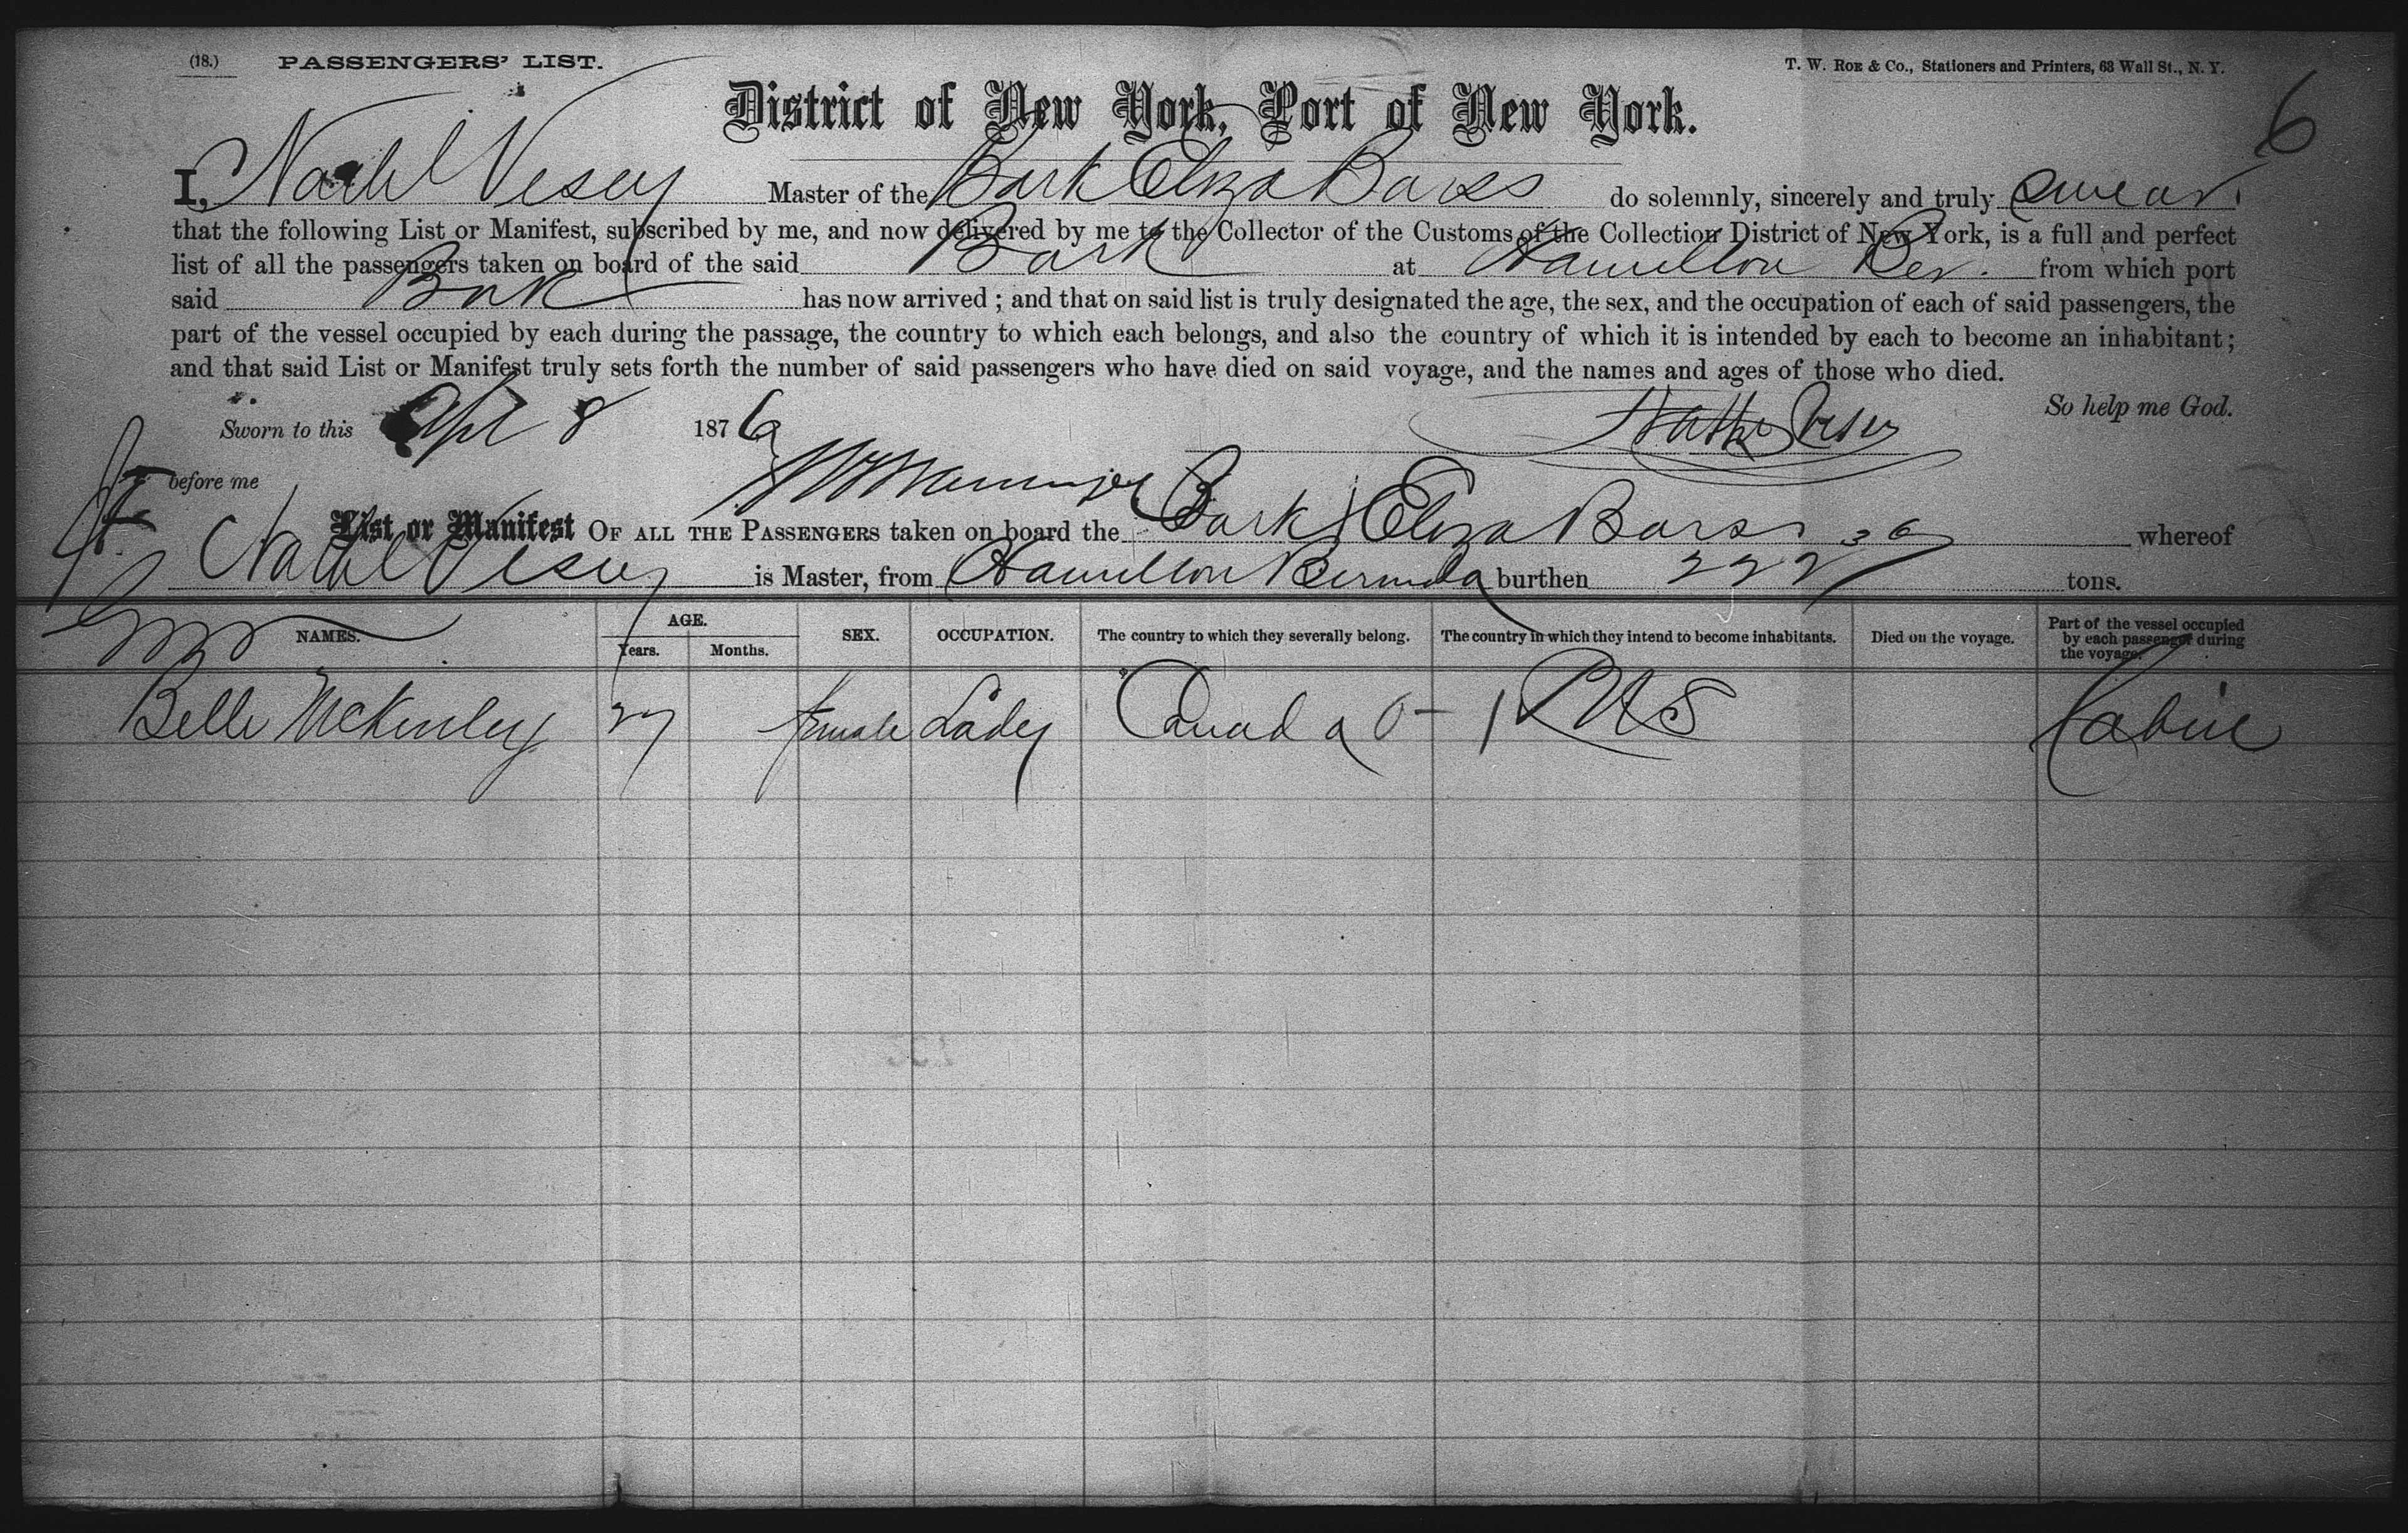 (18.) PASSENGERS' LIST. T. W. ROE & Co., Stationers and Printers, 63 Wall St., N. Y.
6
District of New York, Port of New York.
I, Nathl Vesey Master of the Bark Eliza Barss do solemnly, sincerely and truly swear
that the following List or Manifest, subscribed by me, and now delivered by me to the Collector of the Customs of the Collection District of New York, is a full and perfect
list of all the passengers taken on board of the said Bark at Hamilton Ber. from which port
said Bark has now arrived; and that on said list is truly designated the age, the sex, and the occupation of each of said passengers, the
part of the vessel occupied by each during the passage, the country to which each belongs, and also the country of which it is intended by each to become an inhabitant;
and that said List or Manifest truly sets forth the number of said passengers who have died on said voyage, and the names and ages of those who died.
So help me God.
Sworn to this Apl 8 1876 Nathl Vesey
before me
List or Manifest OF ALL THE PASSENGERS taken on board the Bark Eliza Barss whereof
Nathl Vesey is Master, from Hamilton Bermuda burthen 222 tons.
NAMES. AGE. Years. Months. SEX. OCCUPATION. The country to which they severally belong. The country in which they intend to become inhabitants. Died on the voyage. Part of the vessel occupied by each passenger during the voyage.
Belle McKinley 27 female Lady Canada 0 - 1 Cabin